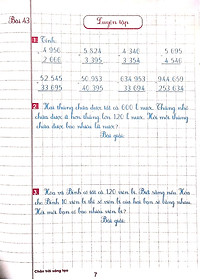 Bài 43
Luyện tập
1. Tính.
4 956 5 824 4 340 5 695
2 668 3 395 3 354 4 546
52 545 50 983 634 953 944 659
33 695 40 395 33 694 253 634
2. Hai thùng chứa được tất cả 600 l nước. Thùng nhỏ
chứa được ít hơn thùng lớn 120 l nước. Hỏi mỗi thùng
chứa được bao nhiêu lít nước?
Bài giải
3. Hoa và Bình có tất cả 120 viên bi. Biết rằng nếu Hoa
cho Bình 10 viên bi thì số viên bi của hai bạn sẽ bằng nhau.
Hỏi mỗi bạn có bao nhiêu viên bi?
Bài giải
Chân trời sáng tạo
7